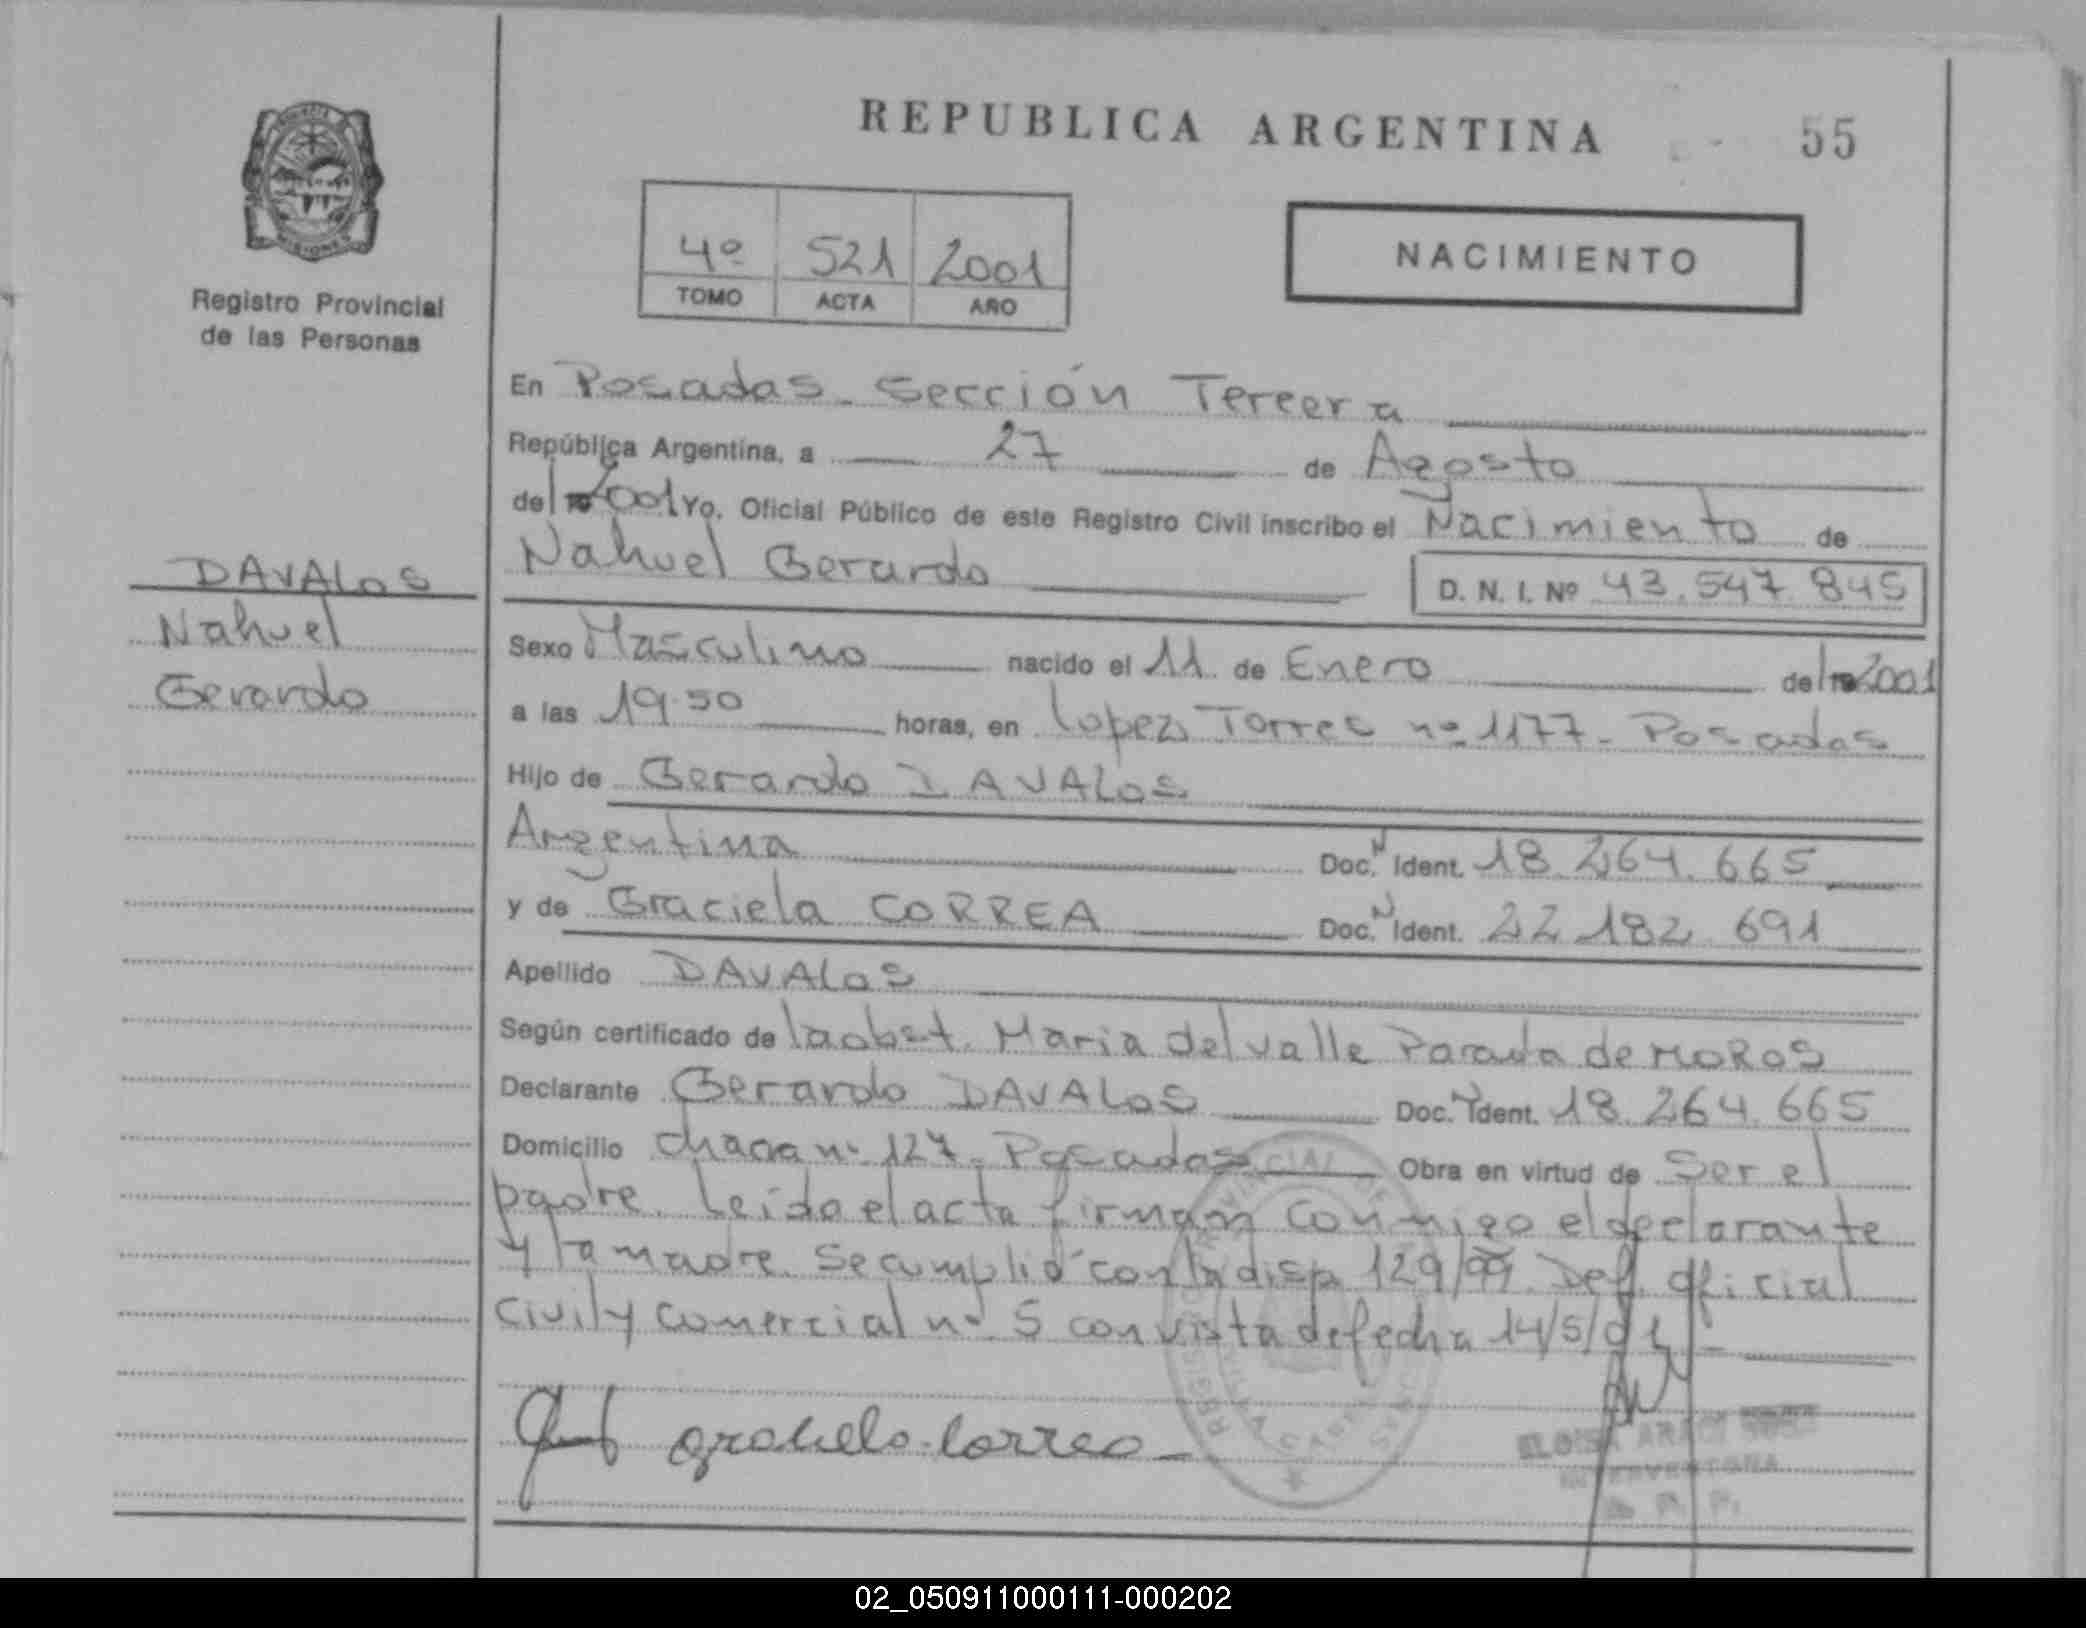 REPUBLICA ARGENTINA
55
PROVINCIA DE
MISIONES
Registro Provincial
de las Personas
4º 521 2001
TOMO ACTA AÑO
NACIMIENTO
En Posadas. Sección Tercera
República Argentina, a 27 de Agosto
del 2001 Yo, Oficial Público de este Registro Civil inscribo el Nacimiento de
Nahuel Gerardo D. N. I. Nº 43.547.845
DAVALOS
Nahuel
Gerardo
Sexo Masculino nacido el 11 de Enero del 2001
a las 19.50 horas, en Lopez Torres nº 1177. Posadas
Hijo de Gerardo DAVALOS
Argentina Doc. N Ident. 18.264.665
y de Graciela CORREA Doc. N Ident. 22.182.691
Apellido DAVALOS
Según certificado de la obst. Maria del valle Parada de MOROS
Declarante Gerardo DAVALOS Doc. N Ident. 18.264.665
Domicilio chacra nº 127. Posadas Obra en virtud de Ser el
padre. Leída el acta firman conmigo el declarante
y la madre. Se cumplió con la disp. 129/99. Def. oficial
Civil y Comercial nº 5 con vista de fecha 14/5/01
graciela. correa
ELOISA ARACI
INTERVENTORA
R. P. P.
02_050911000111-000202